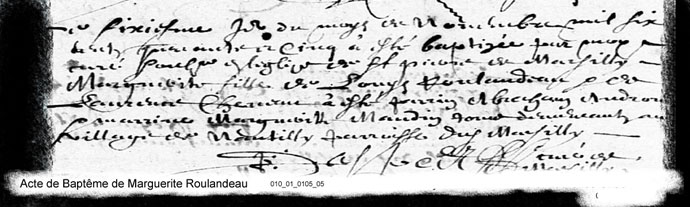 Le sixiesme Jor du moys de Novembre mil six
cent quarante et cinq a esté baptizée par moy
curé soubsne eglize de St pierre de Marsilly
Marguerite fille de Louys Roulandeau & de
Laurence a esté parrin Abraham
& marrine Marguerite Naudin tous demeurants au
village de Nantilly parroisse dud Marsilly
curé de
Marsilly
Acte de Baptême de Marguerite Roulandeau 010_01_0105_05